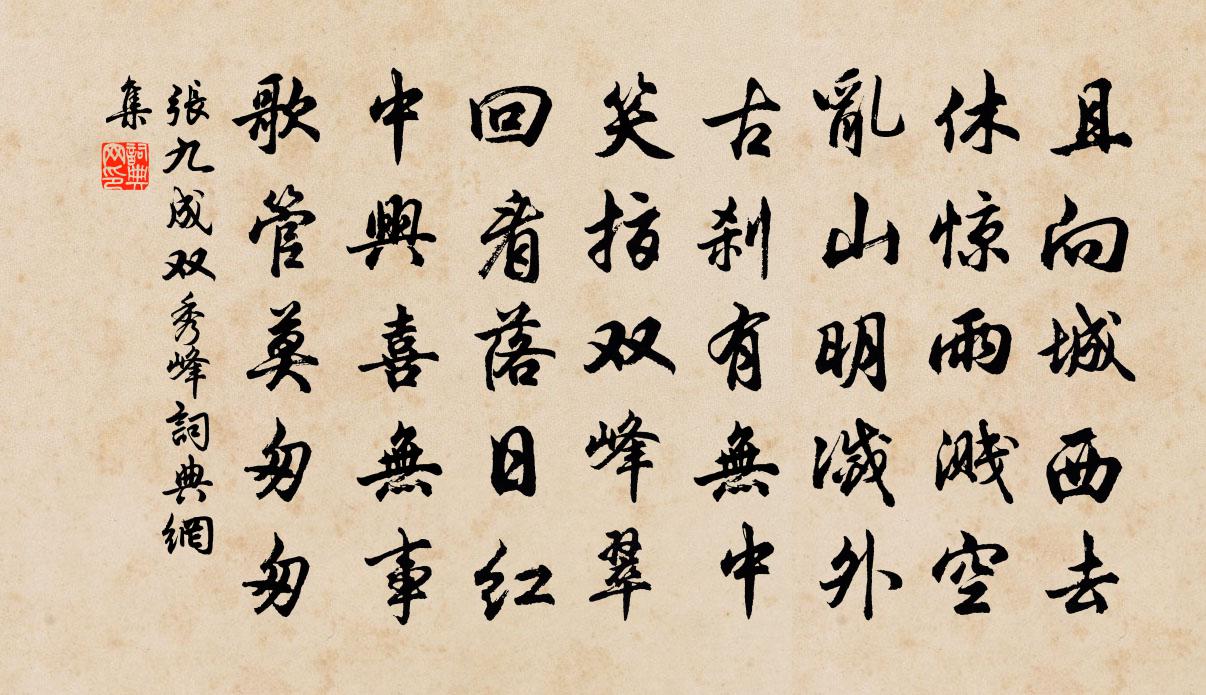 且向城西去
休惊雨溅空
亂山明滅外
古刹有無中
笑指双峰翠
回看落日红
中興喜無事
歌管莫匆匆
張九成双秀峰詞典網
集
詞典網印